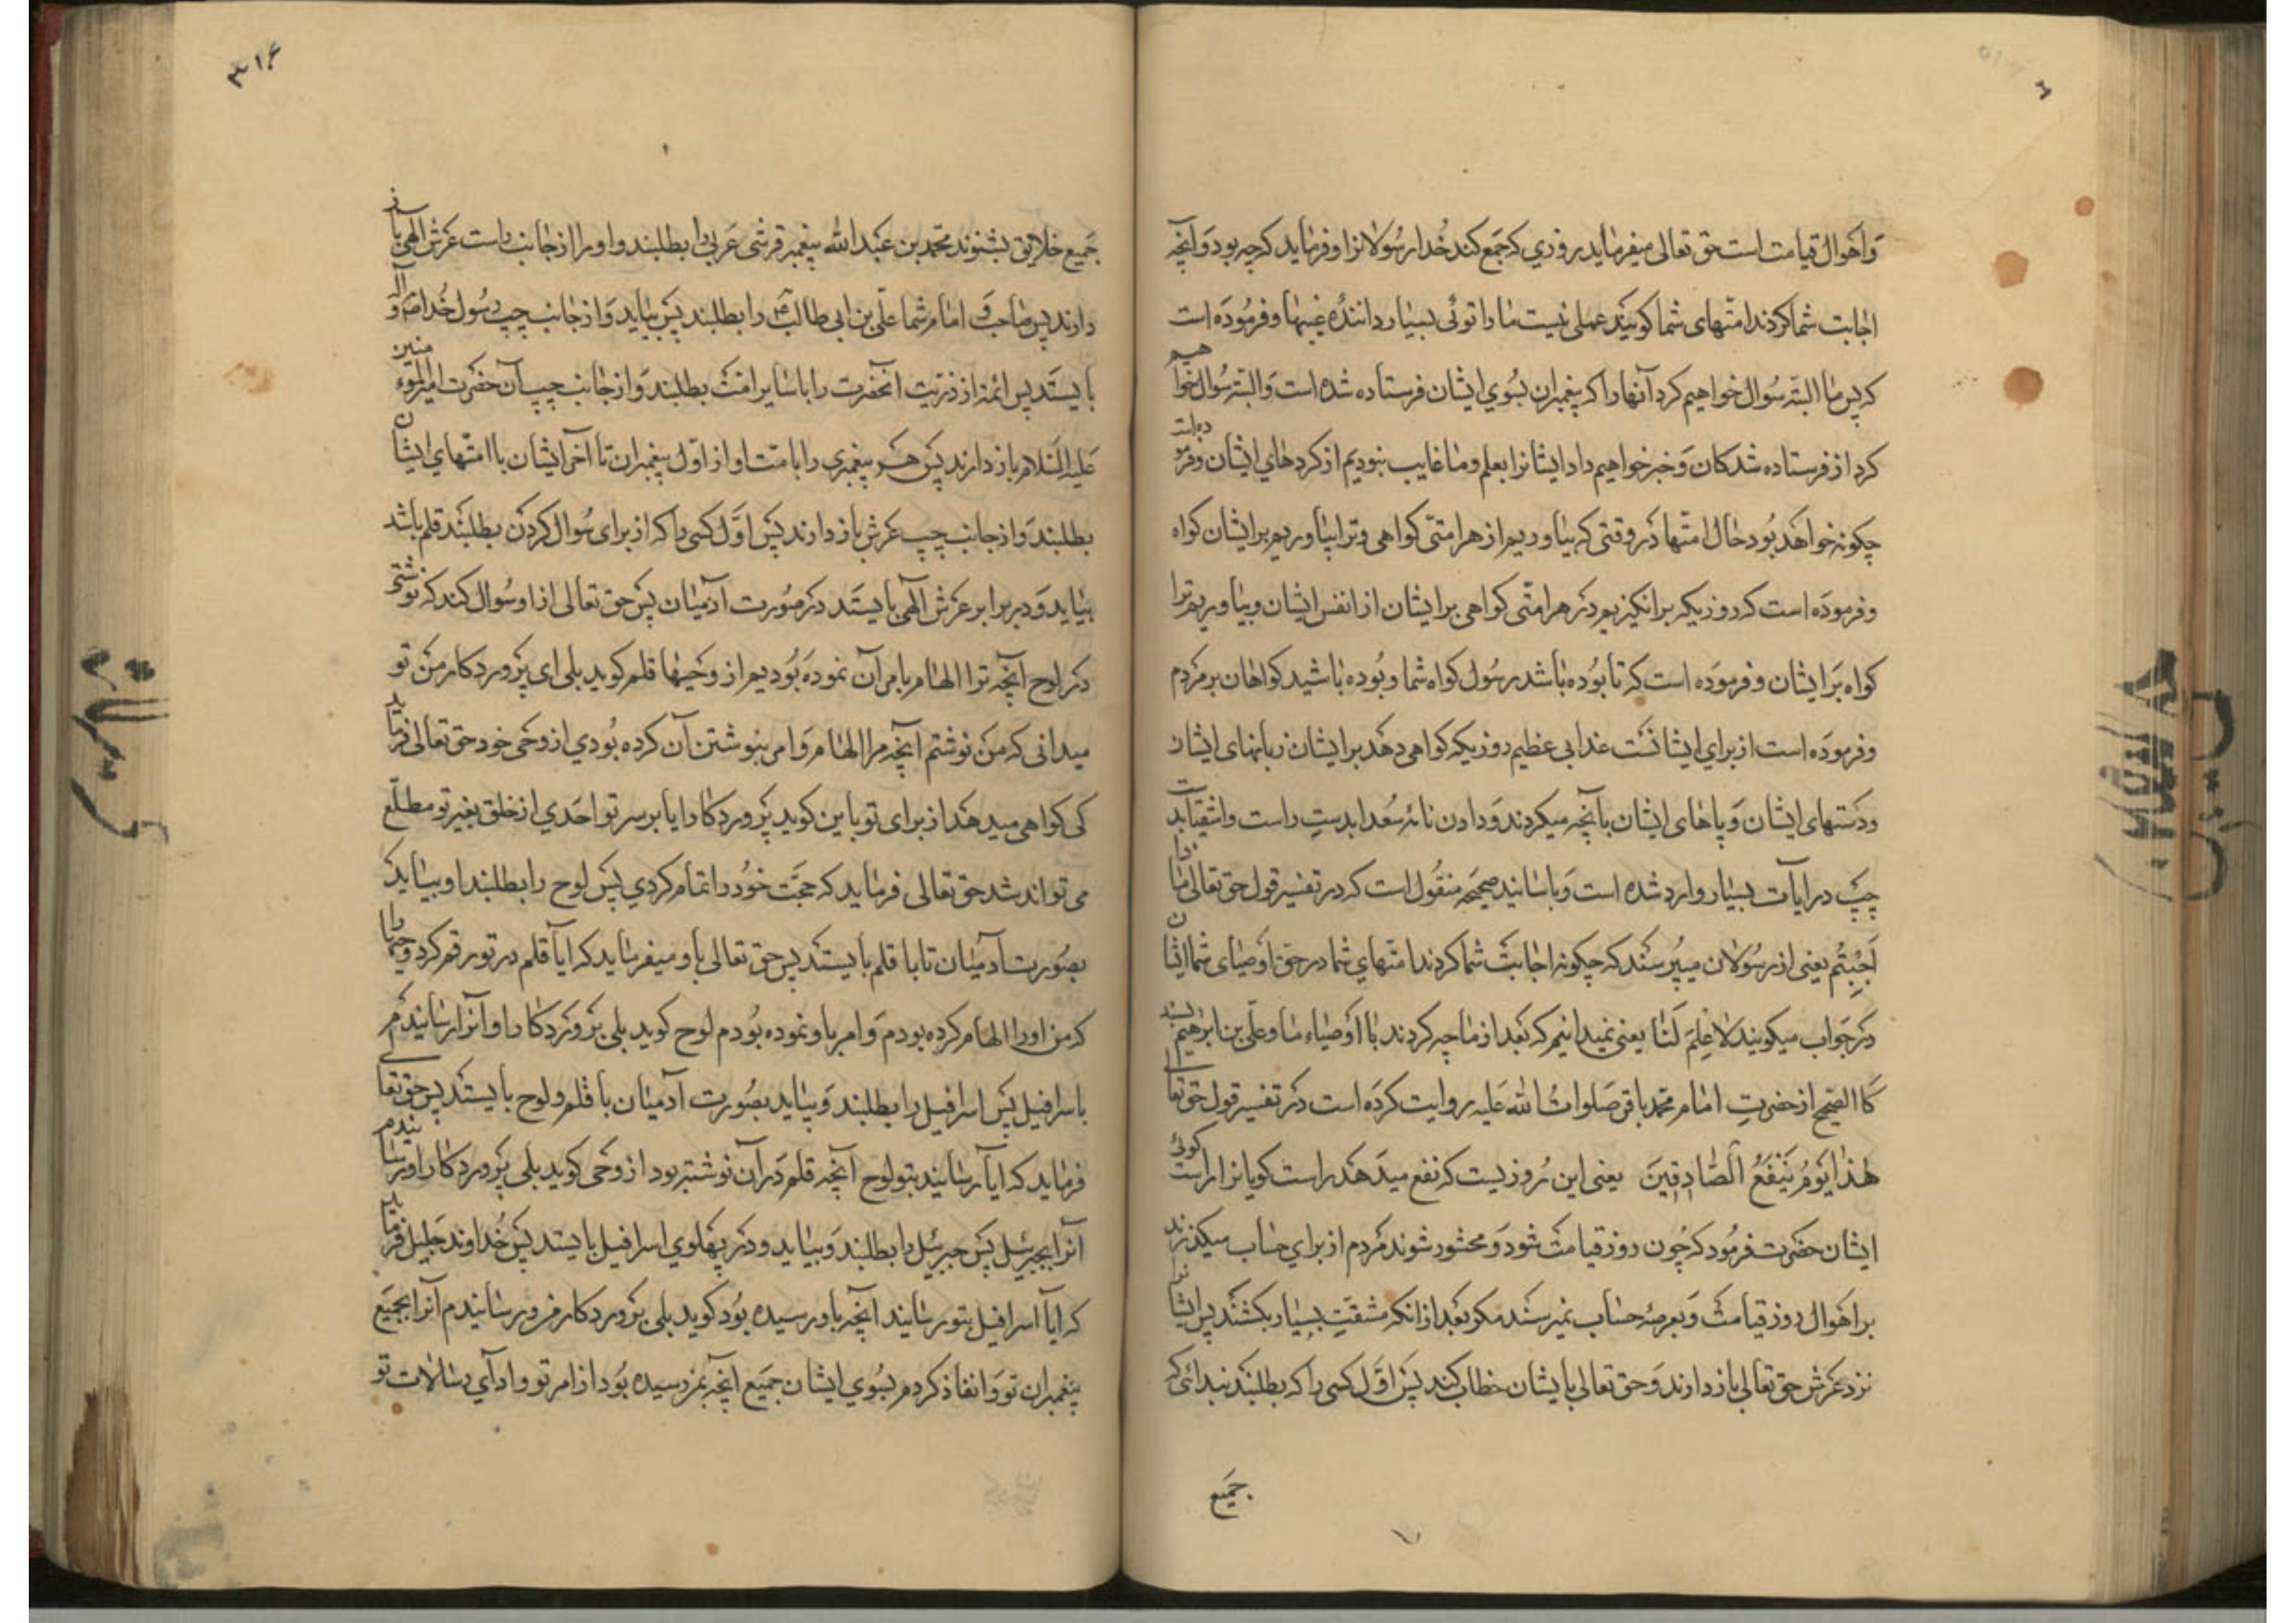 و اهوال قیامت است حق تعالی میفرماید روزی که جمع کند خدا رسولانرا و فرماید که چه بود و آنچه
اجابت شما کردند امتهای شما کویند عملی نیست ما را توئی بسیار دانندهٔ غیبها و فرموده است
که پس ما البته سوال خواهیم کرد آنها را که پیغمبران بسوی ایشان فرستاده شده است و البته سوال خواهیم
کرد از فرستاده شدکان و خبر خواهیم داد ایشانرا بعلم و ما غایب نبودیم از کردهای ایشان و فرموده است
چکونه خواهد بود حال امتها در وقتی که بیاوریم از هر امتی کواهی و ترا بیاوریم بر ایشان کواه
و فرموده است که روزیکه برانکیزیم در هر امتی کواهی بر ایشان از انفس ایشان و بیاوریم ترا
کواه بر ایشان و فرموده است که تا بوده باشد رسول کواه شما و بوده باشید کواهان بر مردم
و فرموده است از برای ایشانست عذابی عظیم روزیکه کواهی دهد بر ایشان زبانهای ایشان
و دستهای ایشان و پاهای ایشان بآنچه میکردند و دادن نامهٔ سعدا بدست راست و اشقیا بدست
چپ در ایات بسیار وارد شده است و باسانید صحیحه منقول است که در تفسیر قول حق تعالی ماذا
اجبتم یعنی از رسولان میپرسند که چکونه اجابت شما کردند امتهای شما در حق اوصیای شما ایشان
در جواب میکویند لا علم لنا یعنی نمیدانیم که بعد از ما چه کردند با اوصیاء ما و علی بن ابرهیم بسند
کا الصحیح از حضرت امام محمد باقر صلوات الله علیه روایت کرده است در تفسیر قول حق تعالی
هذا یوم ینفع الصادقین یعنی این روزیست که نفع میدهد راست کویانرا راست کوئی
ایشان حضرت فرمود که چون روز قیامت شود و محشور شوند مردم از برای حساب میکذرند
بر اهوال روز قیامت و بعرصهٔ حساب نمیرسند مکر بعد از انکه مشقت بسیار بکشند پس ایشانرا
نزد عرش حق تعالی باز دارند و حق تعالی بایشان خطاب کند پس اول کسی را که بطلبند بندائی که
جمیع
۳۱۶
جمیع خلایق بشنوند محمد بن عبد الله پیغمبر قرشی عربی را بطلبند و او را از جانب راست عرش الهی باز
دارند پس صاحب و امام شما علی بن ابی طالب را بطلبند پس بیاید و از جانب چپ رسول خدا ص و آله
بایستد پس ائمه از ذریت آنحضرت را با سایر امت بطلبند و از جانب چپ آن حضرت امیر المؤمنین
علیه السلام باز دارند پس هر پیغمبری را با امت او از اول پیغمبران تا آخر ایشان با امتهای ایشان
بطلبند و از جانب چپ عرش باز دارند پس اول کسی را که از برای سوال کردن بطلبند قلم باشد
بیاید و در برابر عرش الهی بایستد در صورت آدمیان پس حق تعالی از او سوال کند که نوشتی
در لوح آنچه ترا الهام بامر آن نموده بودیم از وحیها قلم کوید بلی ای پروردکار من تو
میدانی که من نوشتم آنچه مرا الهام و امر بنوشتن آن کرده بودی از وحی خود حق تعالی فرماید
کی کواهی میدهد از برای تو باین کوید پروردکارا یا بر سر تو احدی از خلق بغیر تو مطلع
می تواند شد حق تعالی فرماید که حجت خود را تمام کردی پس لوح را بطلبند او بیاید که
بصورت آدمیان تا با قلم بایستد پس حق تعالی باو میفرماید که ایا قلم در تو رقم کرد وحیها را
که من او را الهام کرده بودم و امر باو نموده بودم لوح کوید بلی پروردکارا و آنرا رسانیدم
باسرافیل پس اسرافیل را بطلبند و بیاید بصورت آدمیان با قلم و لوح بایستد پس حق تعالی
فرماید که ایا رسانید بتو لوح آنچه قلم در آن نوشته بود از وحی کوید بلی پروردکارا و رسانیدم
آنرا بجبرئیل پس جبرئیل را بطلبند و بیاید و در پهلوی اسرافیل بایستد پس خداوند جلیل فرماید
که ایا اسرافیل بتو رسانید آنچه باو رسیده بود کوید بلی پروردکار من و رسانیدم آنرا بجمیع
پیغمبران تو و انفاذ کردم بسوی ایشان جمیع آنچه بمن رسیده بود از امر تو و ادای رسالات تو